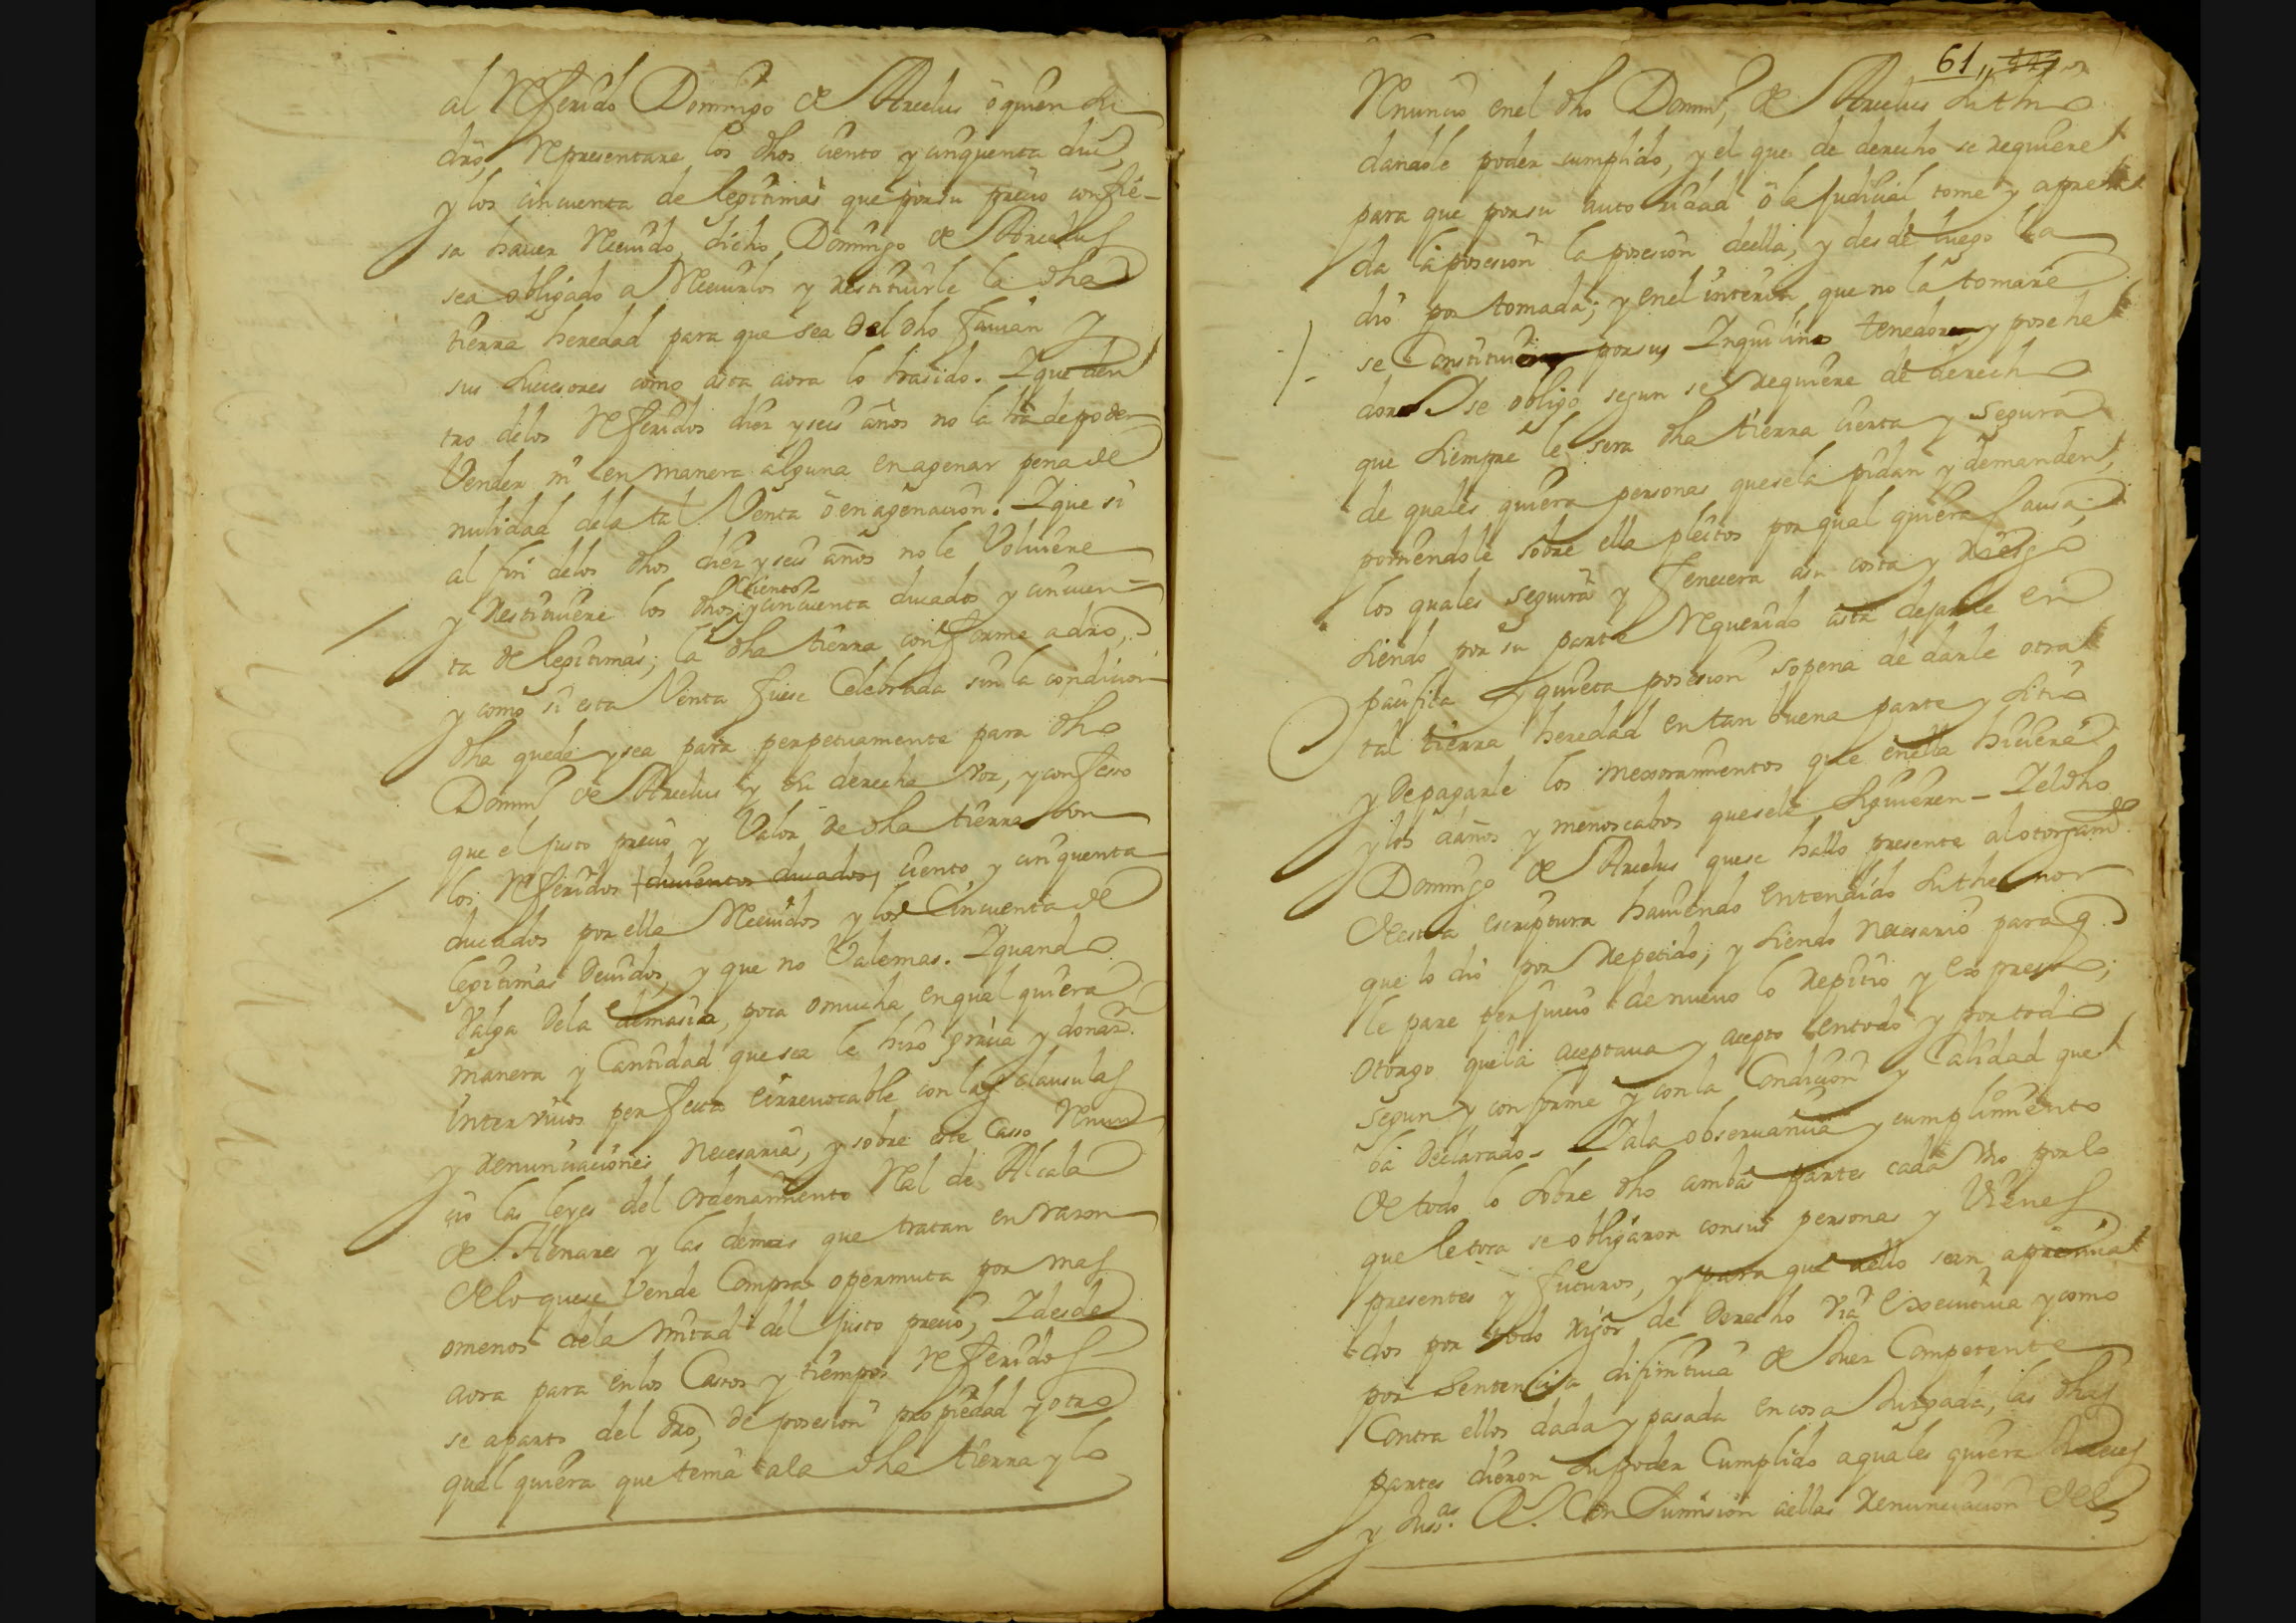 al Referido Domingo de Arcelus o quien su
dro, Representare los dhos ciento y cinquenta duc,
y los cincuenta de legitimas que por su precio confie-
sa hauer Reciuido, dicho Domingo de Arcelus
sea obligado a Reciuirlos y restituirle la dha
tierra heredad para que sea del dho Fauian y
sus succesores como asta aora lo hasido. Y que den
tro delos Referidos diez y seis años no la ha de poder
Vender ni en manera alguna enagenar pena de
nulidad dela tal Venta o enagenacion. Y que si
al fin delos dhos diez y seis años no le Voluiere
y restituiere los dhos ciento y cincuenta ducados y cincuen-
ta de legitimas; la dha tierra conforme a dro,
y como si esta Venta fuese Celebrada sin la condicion
dha quede y sea para perpetuamente para dho
Domin.º de Arcelus y su derecha voz, y confeso
que el justo precio y Valor de dha tierra son
los Referidos ducientos ducados, ciento y cinquenta
ducados por ella Reciuidos y los Cincuenta de
legitimas Deuidos, y que no Vale mas. Y quando
Valga Dela demasia, poca o mucha en qual quiera
manera y Cantidad que sea le hizo gracia y donaz.on
inter viuos perfecta e irreuocable con las clausulas
y renunciaciones necesarias, y sobre este Caso Renun
cio las leyes del ordenamiento Real de Alcala
de Henares y las demas que tratan en razon
delo que se Vende Compra o permuta por mas
o menos dela mitad del justo precio, Y desde
aora para en los Casos y tiempos Referidos
se aparto del dro, de posesion propiedad y otro
qual quiera que tenia ala dha tierra y lo
61
Renuncio en el dho Domin.º de Arcelus
dandole poder cumplido, y el que de derecho se requiere
para que por su autoridad o la Judicial tome y apren
da la posesion la posesion de ella, y desde luego la
dio por tomada; y en el interin que no la tomare
se Constituio por su Inquilino tenedor y posehe
dor Y se obligo segun se requiere de derecho
que siempre le sera dha tierra cierta y segura
de quales quiera personas que se la pidan y demanden,
poniendole sobre ella pleitos por qual quiera Causa,
los quales seguira y fenecera a su costa y riesgo
siendo por su parte Requerido asta dejarle en
pacifica y quieta posesion so pena de darle otra
tal tierra heredad en tan buena parte y sitio
y Depagarle los mexoramientos que en ella hiciere
y los daños y menoscabos que se le siguieren - Y el dho
Domingo de Arcelus que se hallo presente al otorgam.to
de esta escriptura hauiendo entendido su thenor
que lo dio por repetido; y siendo necesario para q.
le pare perjuicio de nueuo lo repitio y Expreso;
otorgo que la aceptaua y acepto en todo y por todo
segun y conforme y con la Condicion y Calidad que
ba Declarado - Y ala obseruancia y cumplimiento
de todo lo sobre dho ambas partes cada Vno por lo
que le toca se obligaron con sus personas y Vienes
presentes y futuros, y para que a ello sean apremia
dos por todo rigor de Derecho via Executiua y como
por Sentencia difinitiua de Juez Competente
Contra ellos dada y pasada en cosa Juzgada, las dhas
partes dieron su poder Cumplido a quales quiera Jueces
y Juss.as &.ª Con Sumision a ellas renunciacion del